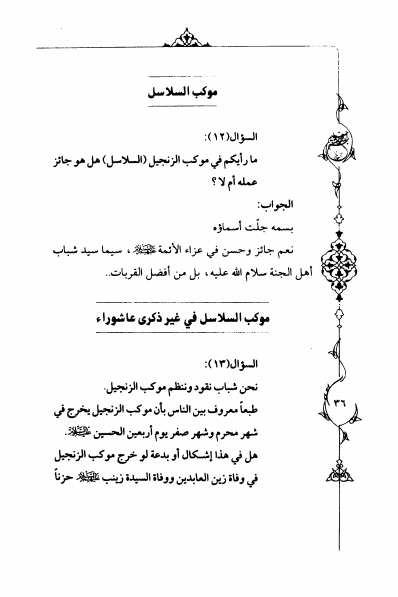 موكب السلاسل
السؤال(١٢):
ما رأيكم في موكب الزنجيل (السلاسل) هل هو جائز
عمله أم لا؟
الجواب:
بسمه جلّت أسماؤه
نعم جائز وحسن في عزاء الأئمة، سيما سيد شباب
أهل الجنة سلام الله عليه، بل من أفضل القربات..
موكب السلاسل في غير ذكرى عاشوراء
السؤال(١٣):
نحن شباب نقود وننظم موكب الزنجيل.
طبعاً معروف بين الناس بأن موكب الزنجيل يخرج في
شهر محرم وشهر صفر يوم أربعين الحسين.
هل في هذا إشكال أو بدعة لو خرج موكب الزنجيل
في وفاة زين العابدين ووفاة السيدة زينب حزناً
٣٦